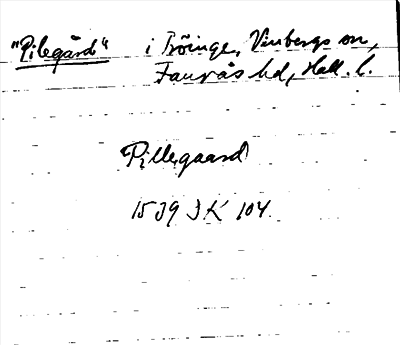 "Pilegård" i Tröinge, Vinbergs sn,
Faurås hd, Hall. l.
Pillegaard
1539 JK 104.